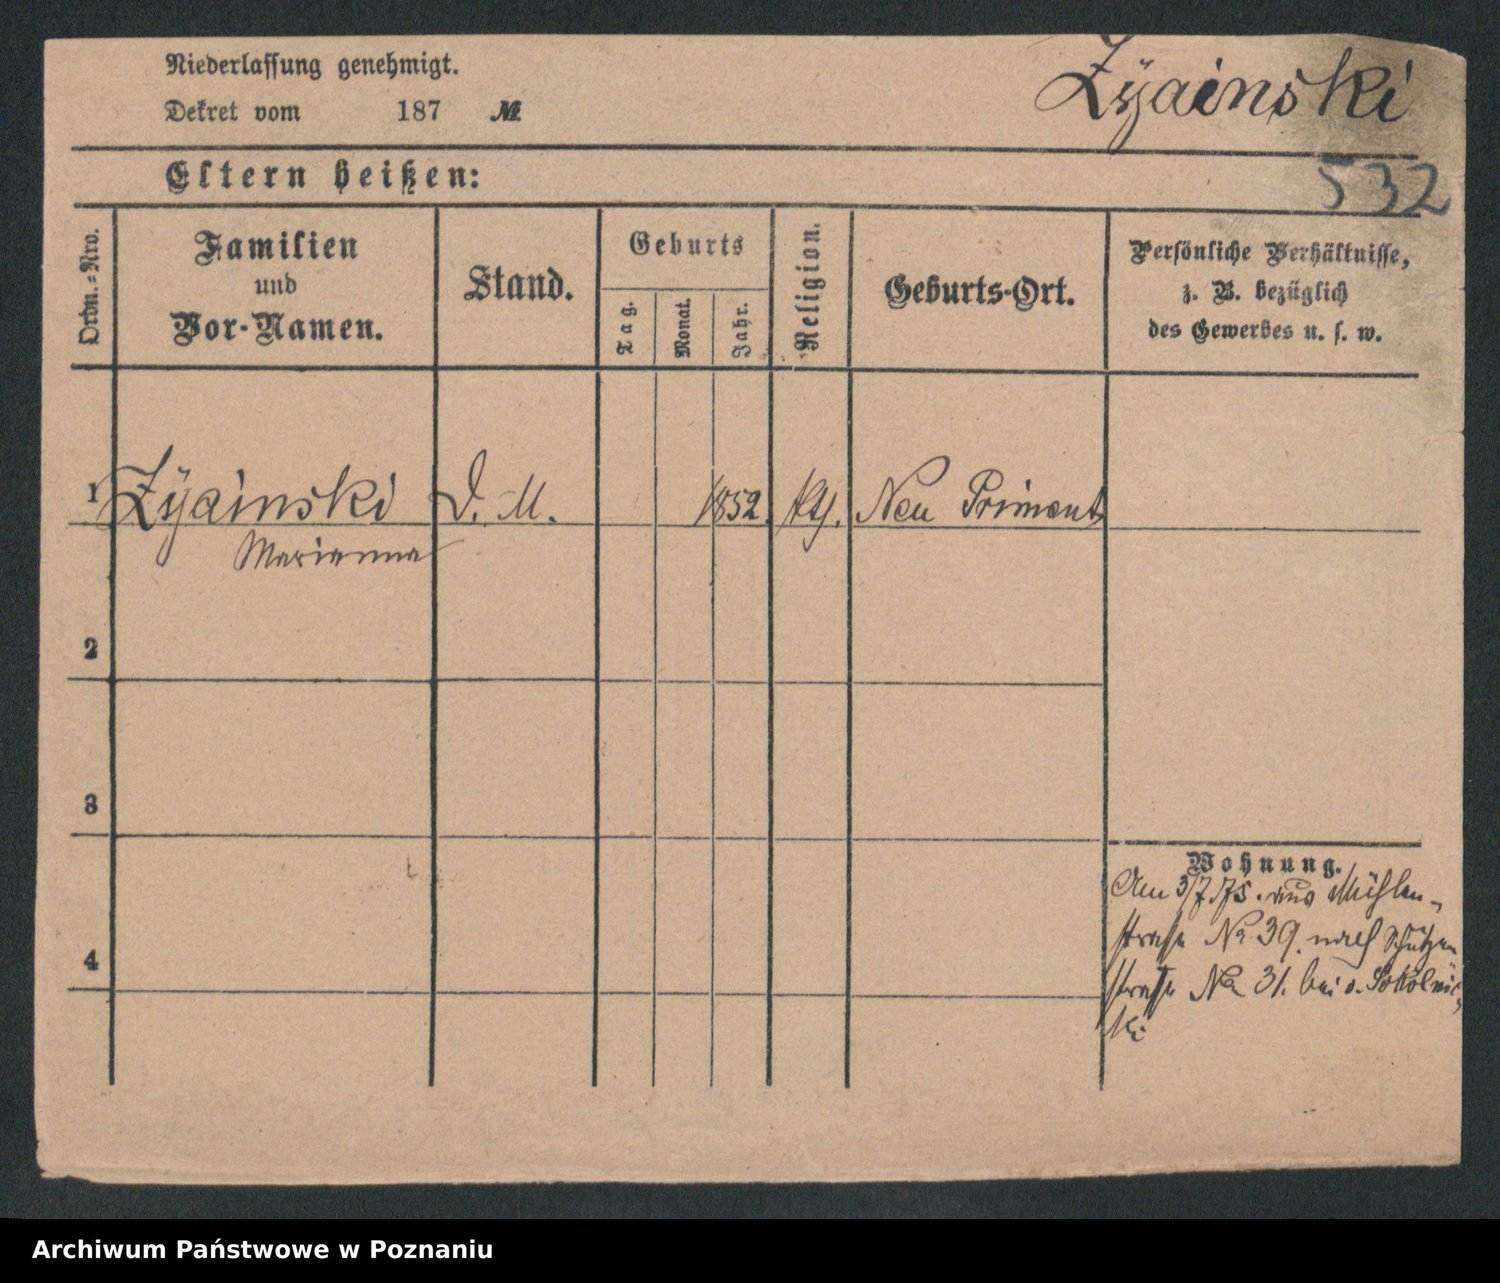 Niederlassung genehmigt.
Zÿainski
Dekret vom 187 №
Eltern heißen:
532
Ordn.-Nro.
Familien
und
Vor-Namen.
Stand.
Geburts
Tag.
Monat.
Jahr.
Religion.
Geburts-Ort.
Persönliche Verhältnisse,
z. B. bezüglich
des Gewerbes u. s. w.
1 Zÿainski D. M. 1852. kth. Neu Priment
Marianna
2
3
4
Wohnung.
Am 3/7.75. aus Mühlen-
straße No 39. nach Schützen
straße No 31. bei v. Sokolnic-
ki
Archiwum Państwowe w Poznaniu